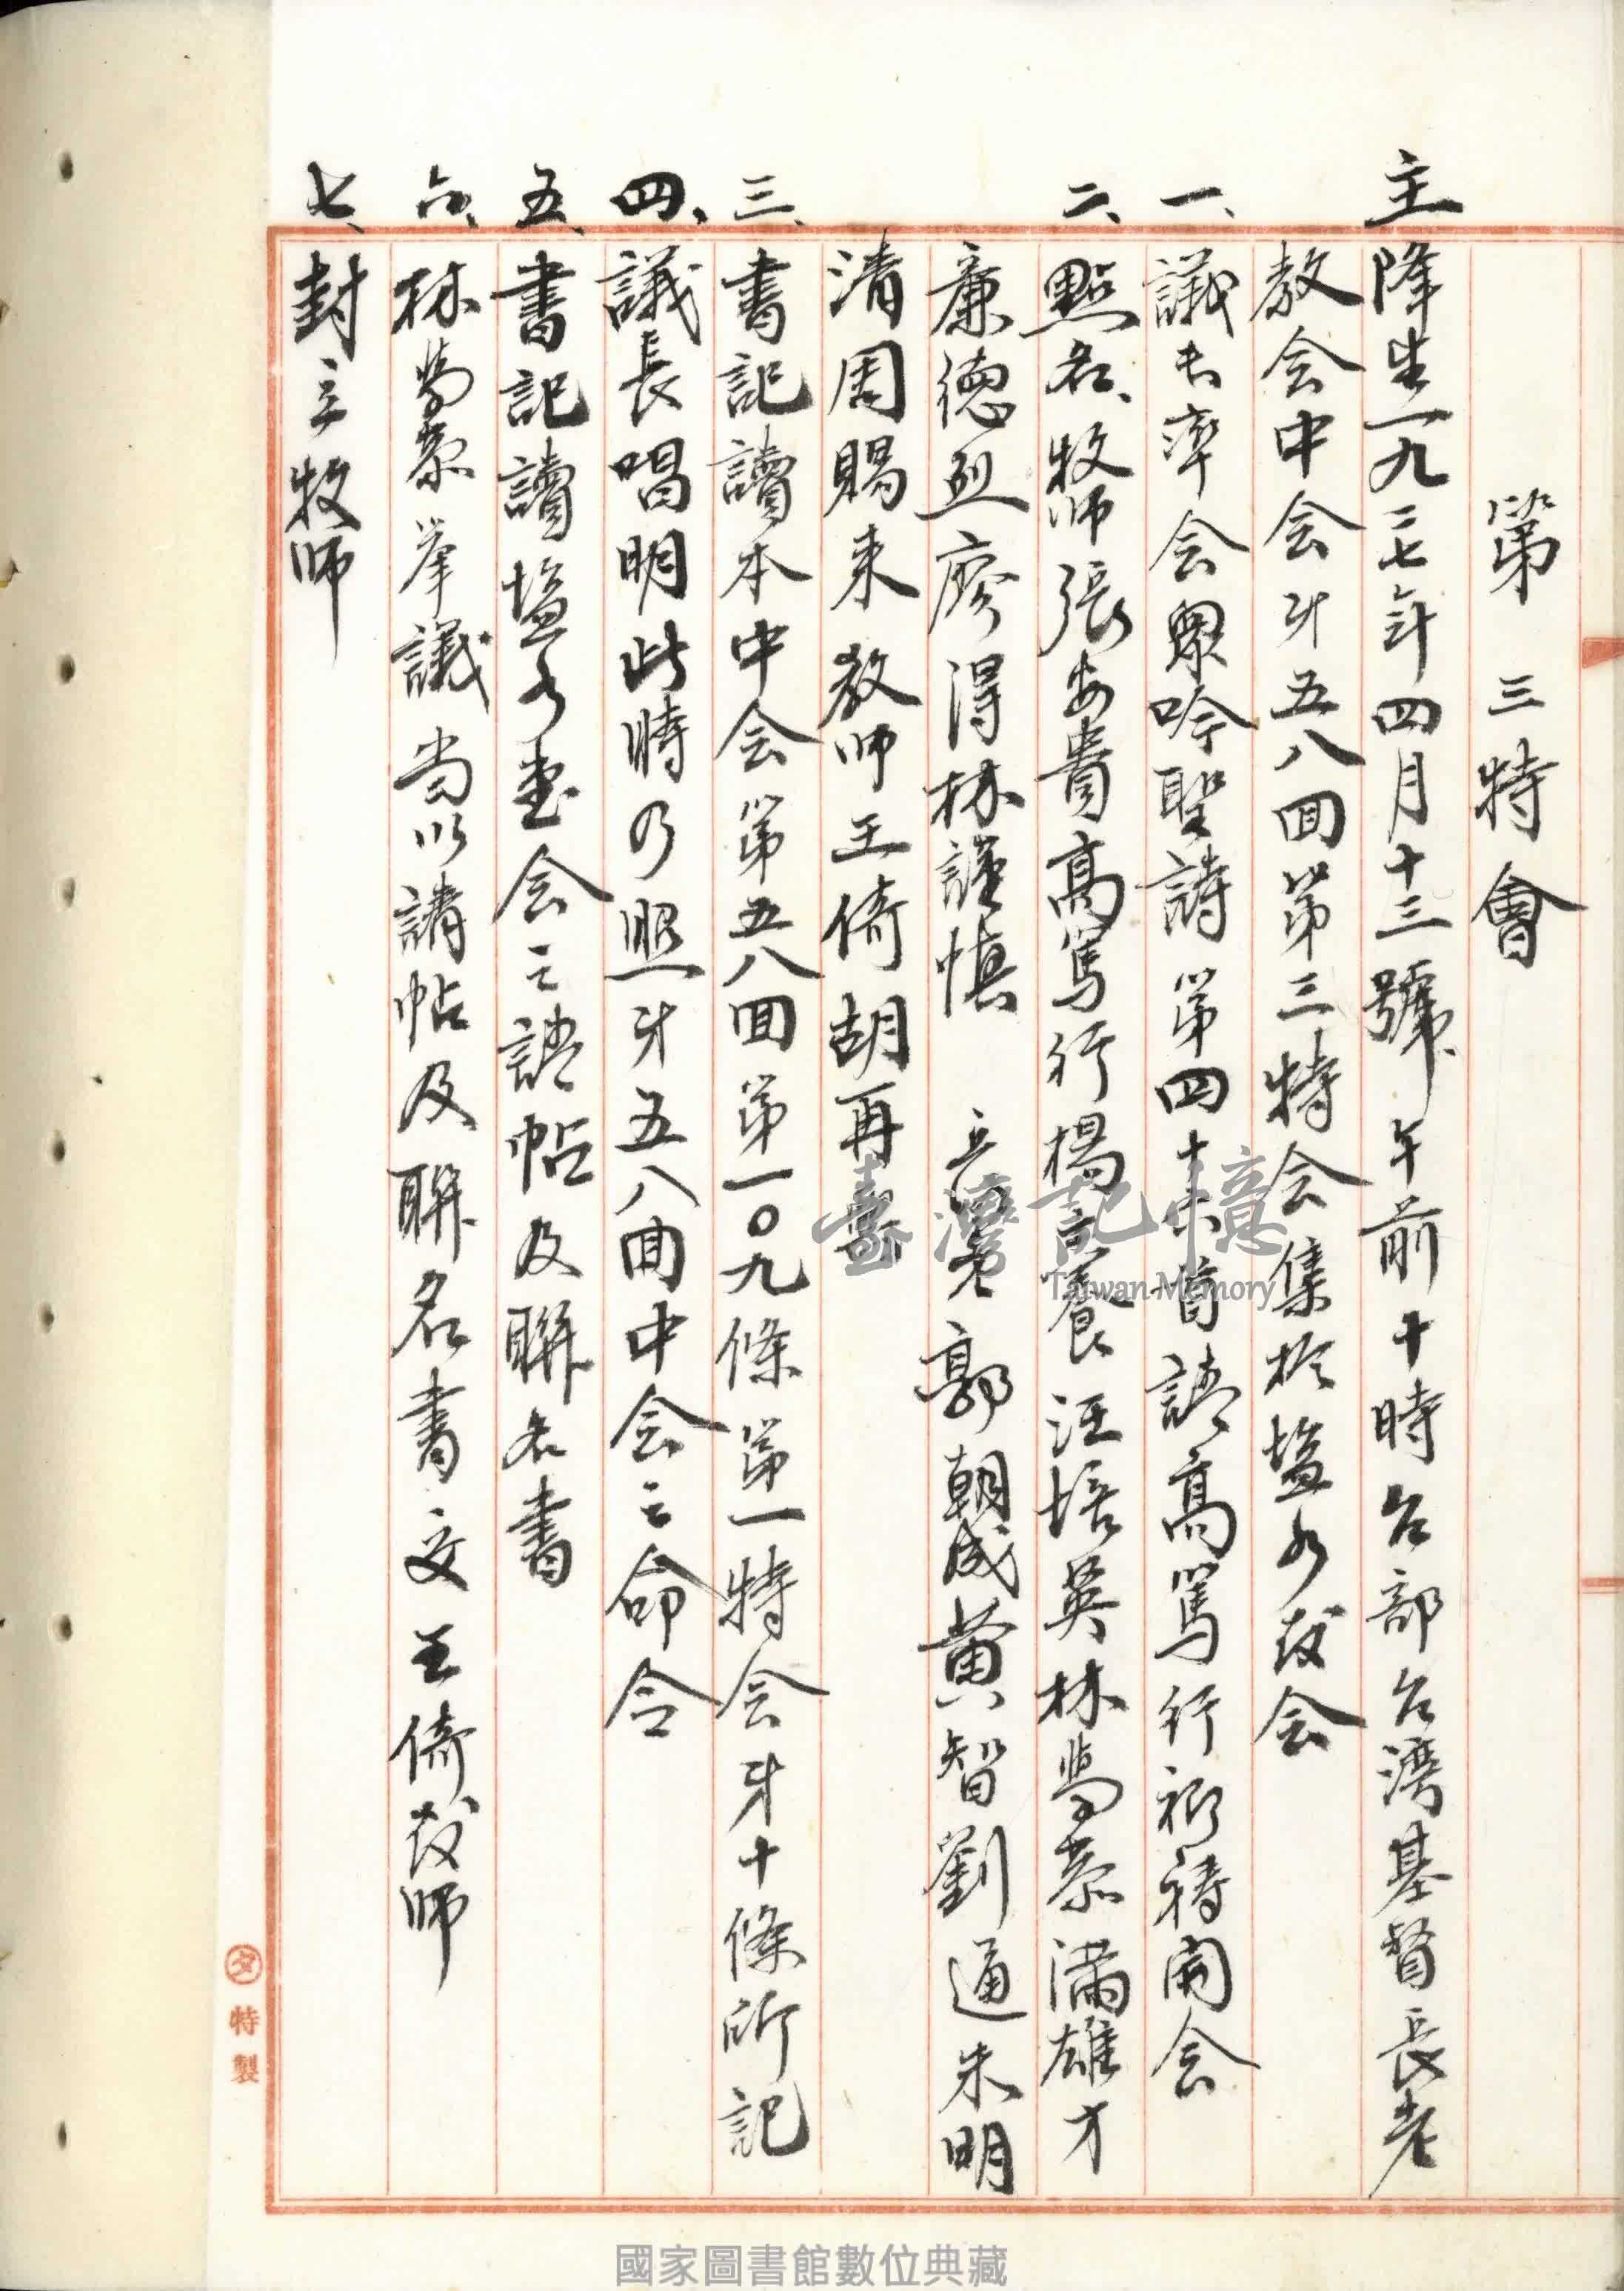 第三特會
主降生一九三七年四月十三號午前十時台部台湾基督長老
教会中会才五八囬第三特会集於塩水教会
一、議長率会衆吟聖詩第四十首請高篤行祈禱開会
二、點名、牧师張安貴高篤行楊世養汪培英林学恭滿雄才
廉德烈廖得林謹慎 長老郭朝成黄智劉通朱明
清周賜来教师王倚胡再
三、書記讀本中会第五八囬第一〇九條第一特会才十條所記
四、議長唱明此時乃照才五八囬中会之命令
五、書記讀塩水堂会之請帖及聯名書
六、林学恭举議当以請帖及聯名書交王倚教师
七、封立牧师
タ特製
臺灣記憶
Taiwan Memory
國家圖書館數位典藏